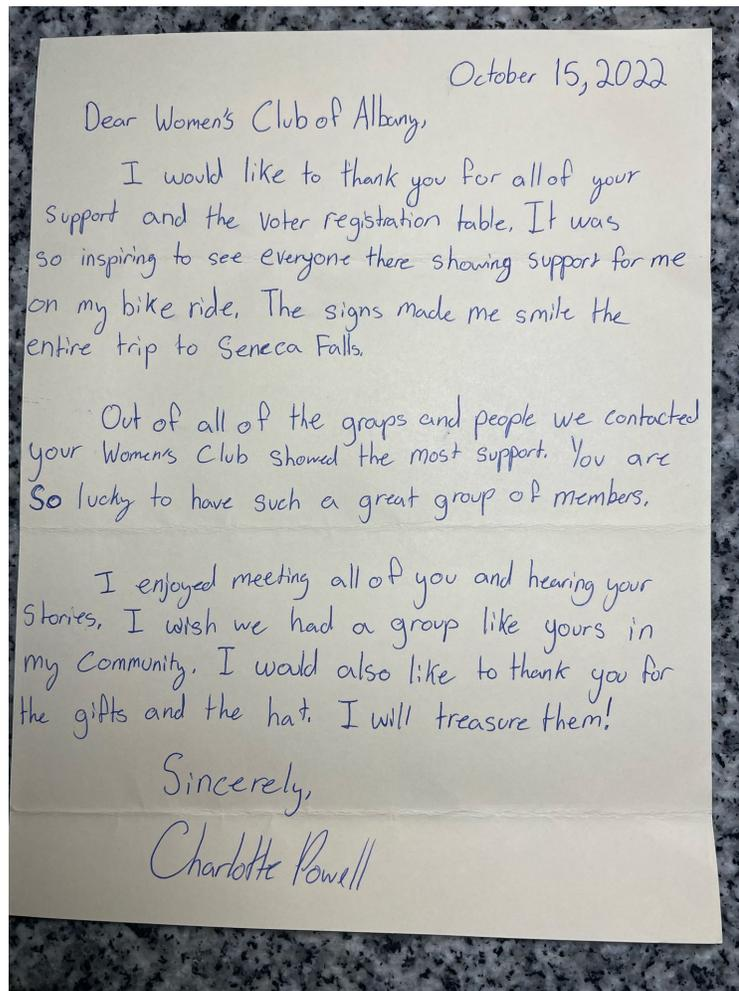 October 15, 2022
Dear Women's Club of Albany,
I would like to thank you for all of your
support and the voter registration table. It was
so inspiring to see everyone there showing support for me
on my bike ride. The signs made me smile the
entire trip to Seneca Falls.
Out of all of the groups and people we contacted
your Women's Club showed the most support. You are
So lucky to have such a great group of members.
I enjoyed meeting all of you and hearing your
Stories. I wish we had a group like yours in
my Community. I would also like to thank you for
the gifts and the hat. I will treasure them!
Sincerely,
Charlotte Powell